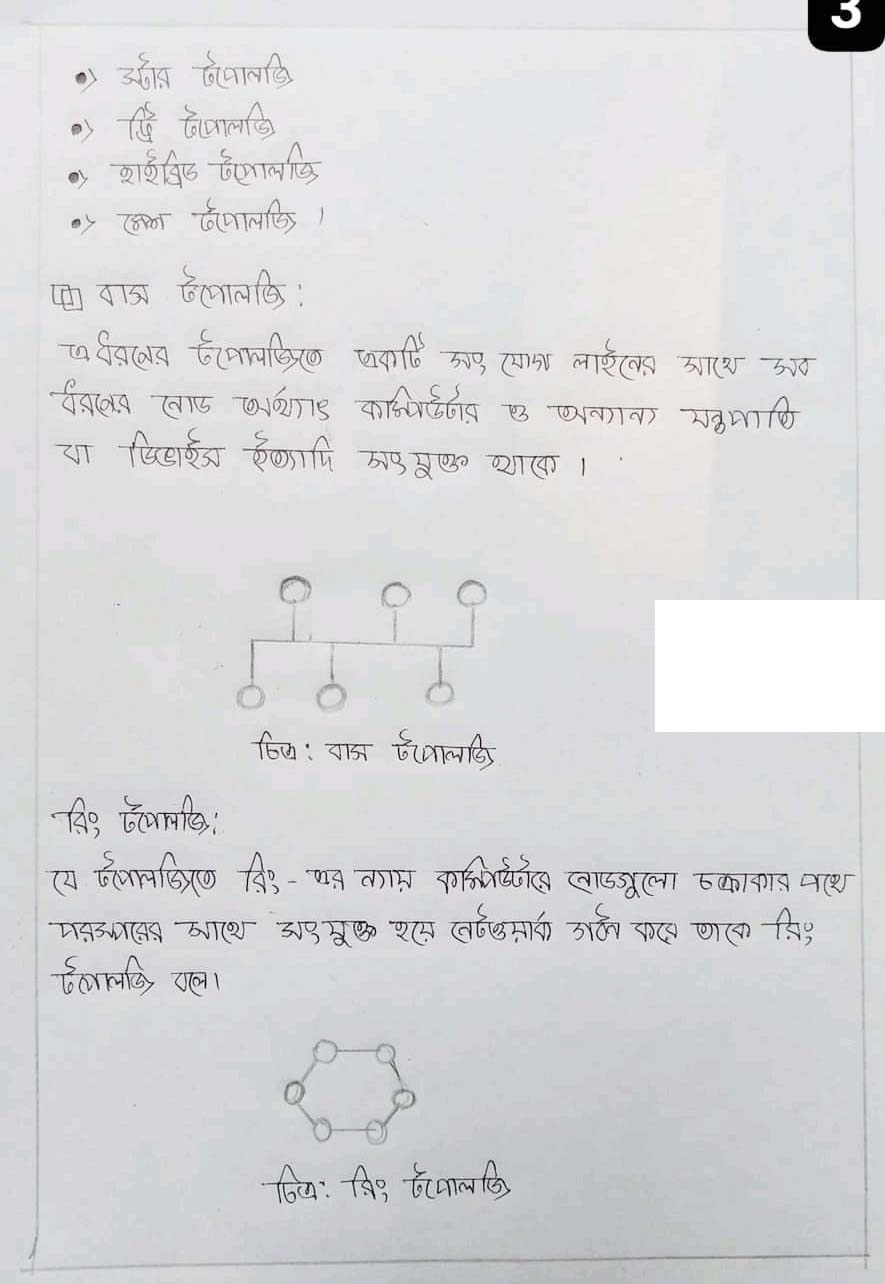 3
•> স্টার টপোলজি
•> ট্রি টপোলজি
•> হাইব্রিড টপোলজি
•> মেশ টপোলজি।
বাস টপোলজি:
এ ধরনের টপোলজিতে একটি সংযোগ লাইনের সাথে সব
ধরনের নোড অর্থ্যাৎ কম্পিউটার ও অন্যান্য যন্ত্রপাতি
বা ডিভাইস ইত্যাদি সংযুক্ত থাকে।
চিত্র: বাস টপোলজি
রিং টপোলজি:
যে টপোলজিতে রিং-এর ন্যায় কম্পিউটারে নোডগুলো চক্রাকার পথে
পরস্পরের সাথে সংযুক্ত হয়ে নেটওয়ার্ক গঠন করে তাকে রিং
টপোলজি বলে।
চিত্র: রিং টপোলজি